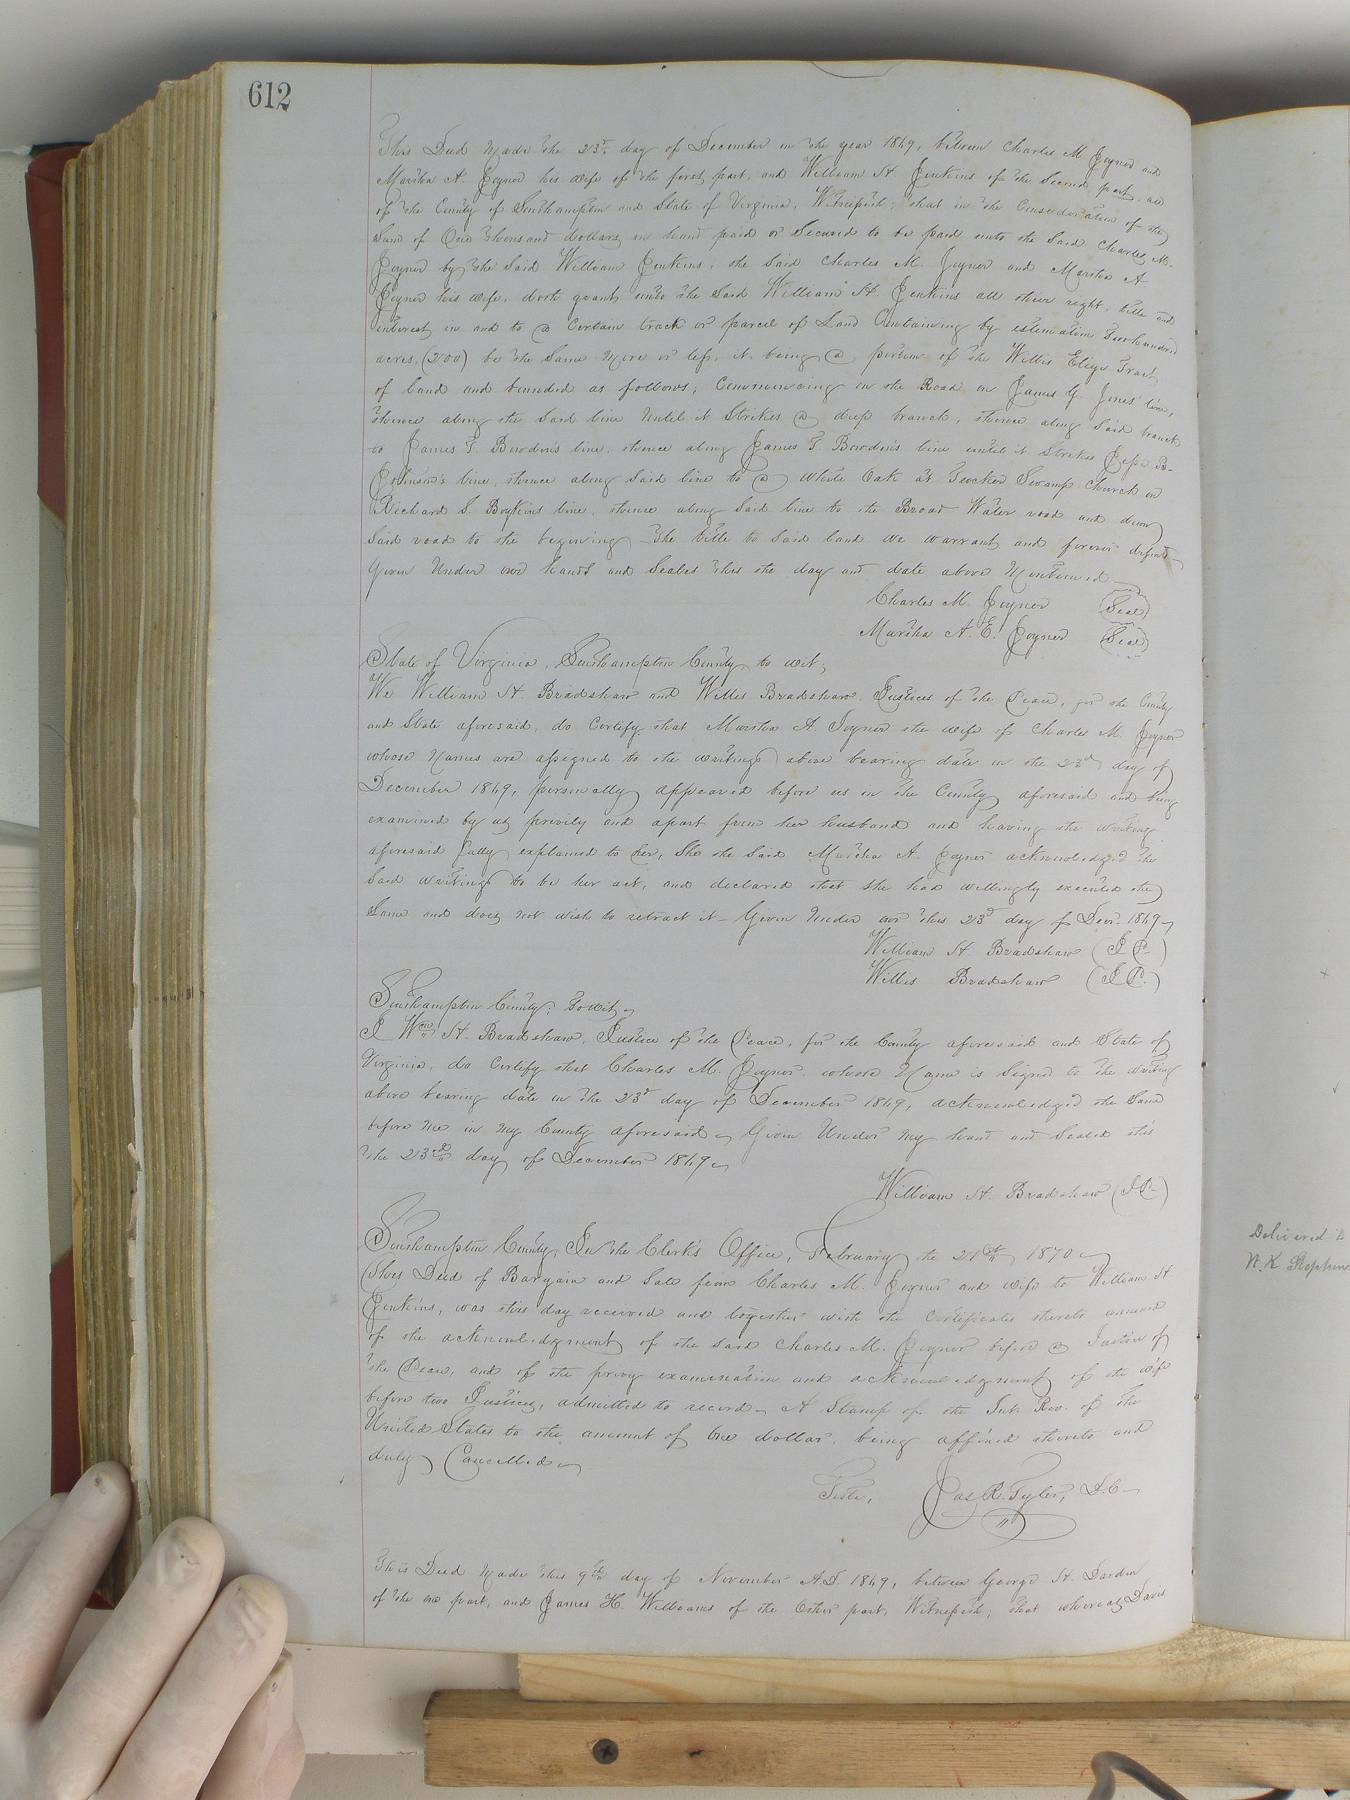 612
This Deed Made the 23d. day of December in the year 1869, between Charles M. Joyner and
Martha A. Joyner his wife of the first part, and William H. Jenkins of the Second part, all
of the County of Southampton and State of Virginia, Witnesseth; that in the Consideration of the
Sum of One thousand dollars in hand paid or Secured to be paid unto the Said Charles M.
Joyner by the Said William Jenkins, the Said Charles M. Joyner and Martha A.
Joyner his wife, doth grant unto the Said William H. Jenkins all their right, title and
interest in and to a Certain track or parcel of Land Containing by estimation Two hundred
acres, (200) be the Same More or less, it being a portion of the Willis Tract
of land and bounded as follows; Commencing in the Road on James Y. Jones' line,
thence along the Said line Until it Strikes a deep branch, thence along Said branch
to James T. Bowden's line, thence along James T. Bowden's line until it Strikes B.
Johnson's line, thence along Said line to a White Oak at Tucker Swamp Church on
Richard S. Boykins line, thence along Said line to the Broad Water road and down
Said road to the begining – The title to Said land we warrant and forever defend
Given Under our hands and Seales this the day and date above Mentioned –
Charles M. Joyner (Seal)
Martha A. E. Joyner (Seal)
State of Virginia, Southampton County, to wit;
We William H. Bradshaw and Willis Bradshaw, Justices of the Peace, for the County
and State aforesaid, do Certify that Martha A. Joyner the wife of Charles M. Joyner
whose Names are assigned to the writings above bearing date in the 23d day of
December 1869, personally appeared before us in the County aforesaid and being
examined by us privily and apart from her husband and having the writing
aforesaid fully explained to her, She the Said Martha A. Joyner acknowledged the
Said writings to be her act, and declared that She had willingly executed the
Same and does not wish to retract it – Given Under our this 23d day of Decr. 1869,
William H. Bradshaw (J.P.)
Willis Bradshaw (J.P.)
Southampton County; Towit,
I Wm. H. Bradshaw, Justice of the Peace, for the County aforesaid and State of
Virginia, do Certify that Charles M. Joyner, whose Name is Signed to the writing
above bearing date in the 23d day of December 1869, acknowledged the Same
before me in my County aforesaid, Given Under my hand and Sealed this
the 23rd day of December 1869,
William H. Bradshaw (J.P.)
Southampton County, In the Clerk's Office, February the 21st, 1870,
This Deed of Bargain and Sale from Charles M. Joyner and wife to William H
Jenkins, was this day received and together with the Certificates thereto annexed
of the acknowledgment of the Said Charles M. Joyner before a Justice of
the Peace, and of the privy examination and acknowledgment of the wife
before two Justices, admitted to record, A Stamp of the Int. Rev. of the
United States to the amount of One dollar, being affixed thereto and
duly Cancelled,
Teste, Jas. R. Tyler, D.C.
This Deed Made this 9th day of November A.D. 1869, between George H. Darden
of the one part, and James H. Williams of the Other part, Witnesseth; that whereas Davis
Delivered to
N. K Stephens